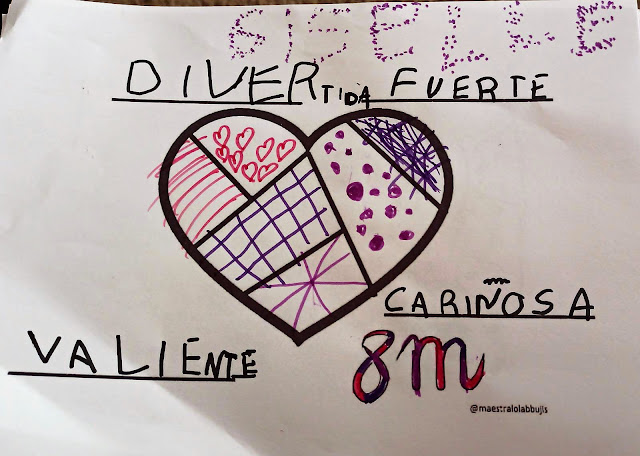 GISELLE
DIVERTIDA FUERTE
CARIÑOSA
VALIENTE
8m
@maestralolabbujls